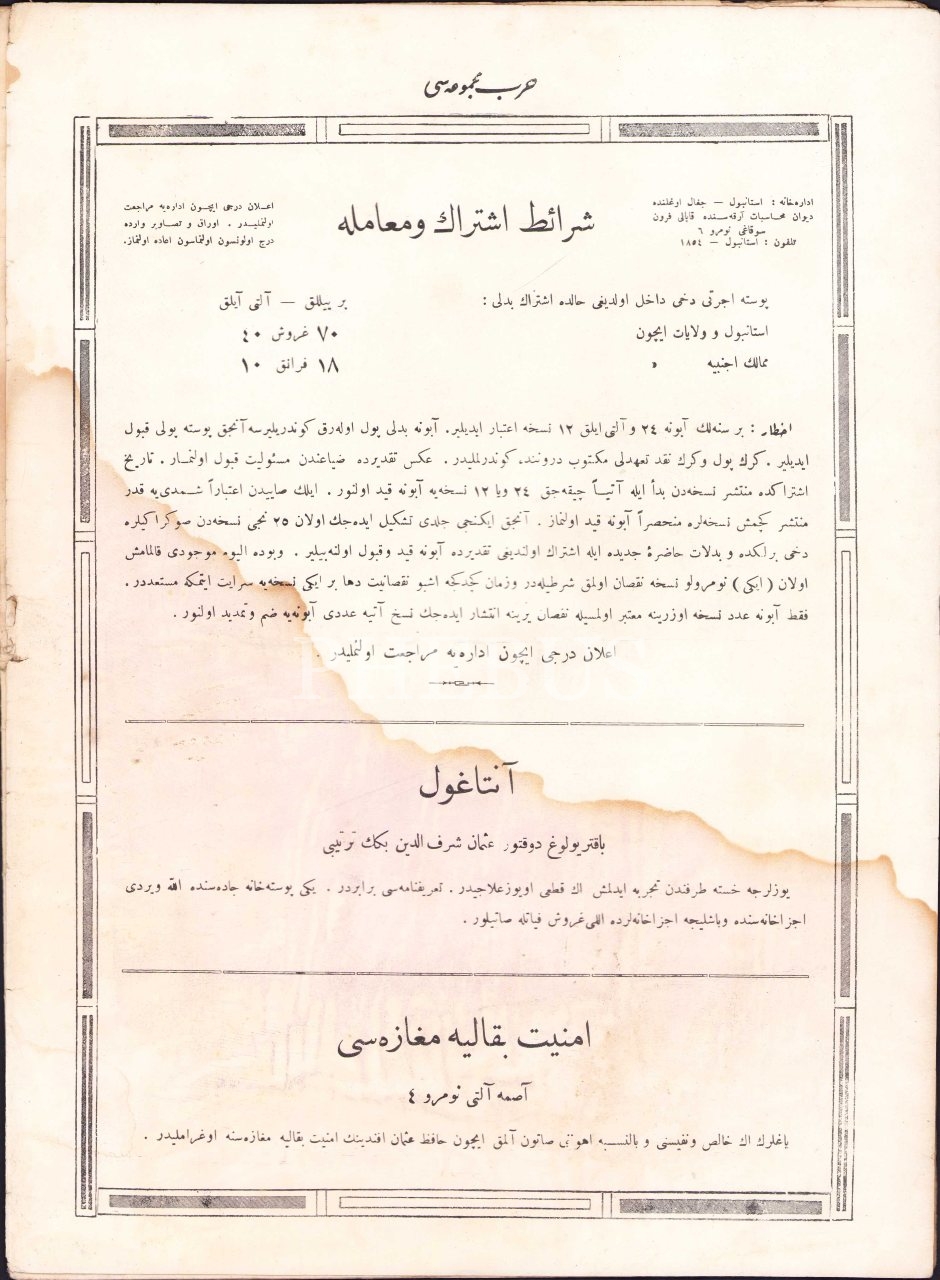 حرب مجموعه‌سی
اداره‌خانه : استانبول — جغال اوغلنده
دیوان محاسبات آرقه‌سنده قاپالی فرون
سوقاغی نومرو ٦
تلفون : استانبول — ١٨٥٤
شرائط اشتراك ومعامله
اعلان درجی ایچون اداره‌یه مراجعت
اولنملیدر . اوراق و تصاویر وارده
درج اولونسون اولنماسون اعاده اولنماز.
پوسته اجرتی دخی داخل اولدیغی حالده اشتراك بدلی : بر ییللق — آلتی آیلق
استانبول و ولایات ایچون ٧٠ غروش ٤٠
ممالك اجنبیه » ١٨ فرانق ١٠
اخطار : بر سنه‌لك آبونه ٢٤ و آلتی ایلق ١٢ نسخه اعتبار ایدیلیر. آبونه بدلی پول اوله‌رق كوندریلیرسه آنجق پوسته پولی قبول
ایدیلیر . كرك پول و كرك نقد تعهدلی مكتوب دروننده كوندرلملیدر . عكس تقدیرده ضیاعندن مسئولیت قبول اولنماز . تاریخ
اشتراكده منتشر نسخه‌دن بدأ ایله آتیاً چیقه‌جق ٢٤ ویا ١٢ نسخه‌یه آبونه قید اولنور . ایلك صاییدن اعتباراً شمدی‌یه قدر
منتشر كچمش نسخه‌لره منحصراً آبونه قید اولنماز . آنجق ایكنجی جلدی تشكیل ایده‌جك اولان ٢٥ نجی نسخه‌دن صوكراكیلره
دخی برلكده و بدلات حاضرۀ جدیده ایله اشتراك اولندیغی تقدیرده آبونه قید وقبول اولنه‌بیلیر . وبوده الیوم موجودی قالمامش
اولان ( ایكی ) نومرولو نسخه نقصان اولمق شرطیله‌در وزمان كچدكجه اشبو نقصانیت دها بر ایكی نسخه‌یه سرایت ایتمكه مستعددر .
فقط آبونه عدد نسخه اوزرینه معتبر اولمسیله نقصان یرینه انتشار ایده‌جك نسخ آتیه عددی آبونه‌یه ضم وتمدید اولنور .
اعلان درجی ایچون اداره‌یه مراجعت اولنملیدر .
آنتاغول
باقتریولوغ دوقتور عثمان شرف الدین بكك ترتیبی
یوزلرجه خسته طرفندن تجربه ایدلمش اك قطعی اویوز علاجیدر . تعریفنامه‌سی برابردر . یكی پوسته‌خانه جاده‌سنده الله ویردی
اجزاخانه‌سنده وباشلیجه اجزاخانه‌لرده اللی غروش فیاتله صاتیلور .
امنیت بقالیه مغازه‌سی
آصمه آلتی نومرو ٤
یاغلرك اك خالص ونفیسنی و بالنسبه اهوننی صاتون آلمق ایچون حافظ عثمان افندینك امنیت بقالیه مغازه‌سنه اوغراملیدر .